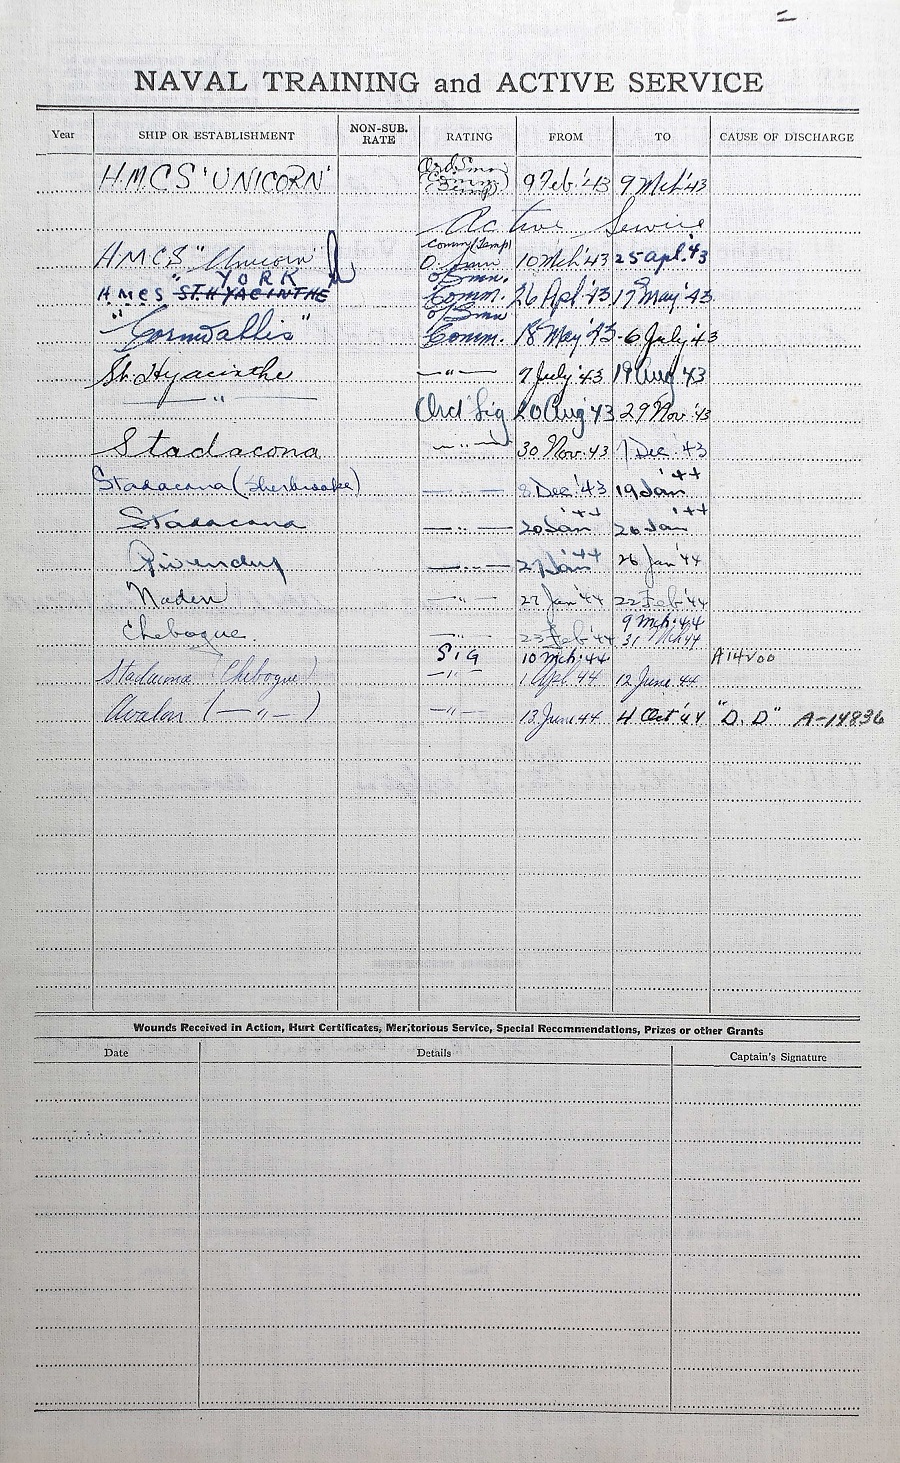 NAVAL TRAINING and ACTIVE SERVICE
Year SHIP OR ESTABLISHMENT NON-SUB. RATE RATING FROM TO CAUSE OF DISCHARGE
H.M.C.S 'UNICORN' Ord. Smn 9 Feb. '43 9 Mch '43
Active Service
H.M.C.S "Unicorn" Comm (Temp) O. Smn 10 Mch '43 25 apl. '43
H M C S "YORK ST. HYACINTHE O/Smn. Comm. 26 Apl '43 17 May '43.
"Cornwallis" O/Smn Comm. 18 May '43 - 6 July '43
St. Hyacinthe — " — 7 July '43 19 Aug '43
— " — Ord Sig 20 Aug '43 29 Nov. '43
Stadacona — " — 30 Nov. 43 7 Dec. '43
Stadacona (Sherbrooke) — " — 8 Dec. '43 19 Jan '44
Stadacona — " — 20 Jan '44 20 Jan '44
— " — 21 Jan '44 26 Jan '44
Naden — " — 27 Jan '44 22 Feb '44
Chebogue. — " — 23 Feb '44 9 Mch. 44
31 Mch 44
SIG 10 Mch. 44 A14V00
Stadacona (Chebogue) — " — 1 Apl 44 12 June 44
Avalon (— " —) — " — 13 June 44 4 Oct '44 "D.D" A-14836
Wounds Received in Action, Hurt Certificates, Meritorious Service, Special Recommendations, Prizes or other Grants
Date Details Captain's Signature